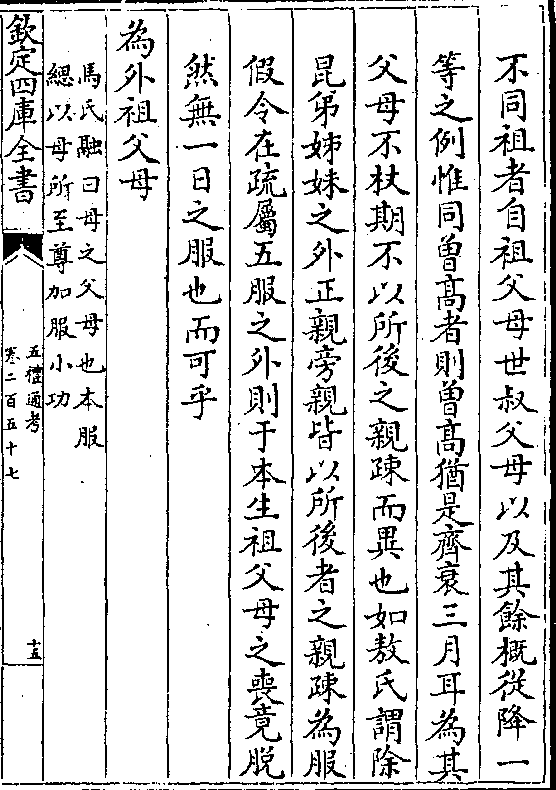 不同祖者自祖父母世叔父母以及其餘概從降一
等之例惟同曾高者則曾高猶是齊衰三月耳為其
父母不杖期不以所後之親疎而異也如敖氏謂除
昆弟姊妹之外正親旁親皆以所後者之親疎為服
假令在疏屬五服之外則于本生祖父母之喪竟脱
然無一日之服也而可乎
為外祖父母
馬氏融曰母之父母也本服
緦以母所至尊加服小功
欽定四庫全書
五禮通考
卷二百五十七
十五